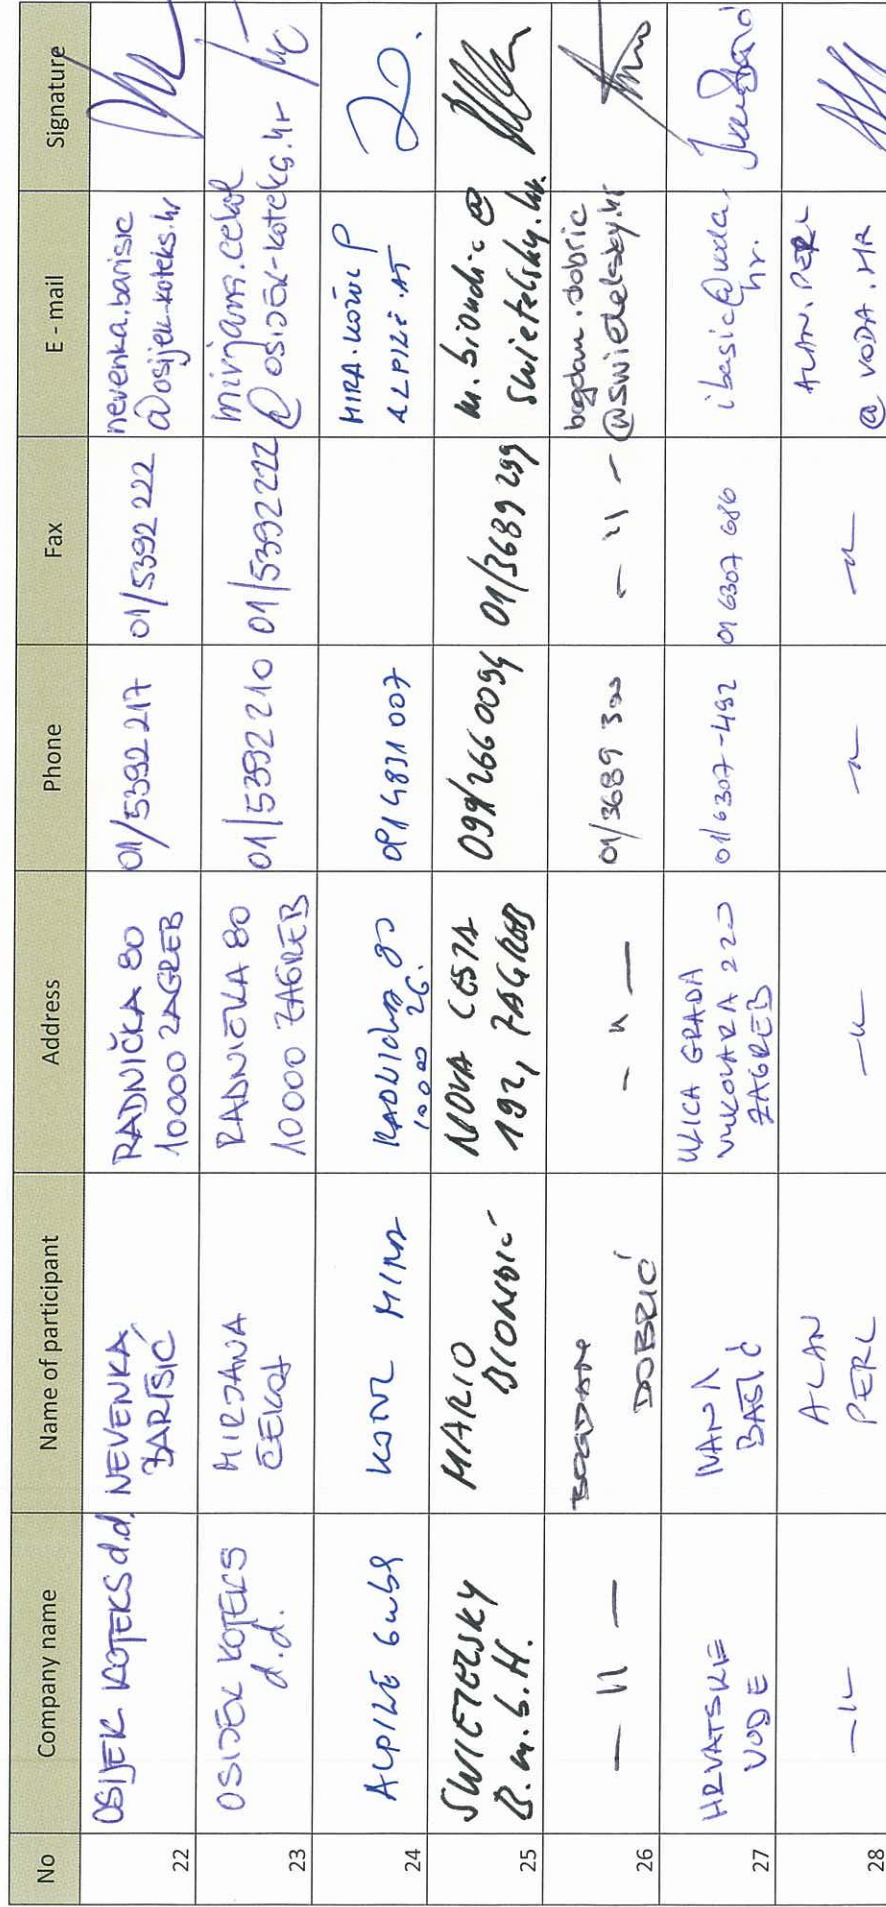 No Company name Name of participant Address Phone Fax E - mail Signature
22 OSIJEK KOTEKS d.d. NEVENKA BARIŠIĆ RADNIČKA 80 10000 ZAGREB 01/5392 217 01/5392 222 nevenka.barisic @osijek-koteks.hr
23 OSIJEK KOTEKS d.d. MIRJANA ČEKOL RADNIČKA 80 10000 ZAGREB 01/5392 210 01/5392 222 mirjana.cekol @osijek-koteks.hr
24 ALPINE GmbH MIRA 10000 ZG. 0914831007
25 SWIETELSKY B.m.b.H. MARIO BIONDIĆ NOVA CESTA 192, ZAGREB 099/2660094 01/3689 299 m.biondic@ swietelsky.hr
26 — 11 — BOGDAN DOBRIĆ — " — 01/3689 300 — 11 — bogdan.dobric @swietelsky.hr
27 HRVATSKE VODE IVANA BAŠIĆ ULICA GRADA VUKOVARA 220 ZAGREB 01/6307-492 01 6307 686 ibasic@voda.hr.
28 —11— ALAN PERL —"— —"— —"— ALAN.PERL @ VODA.HR